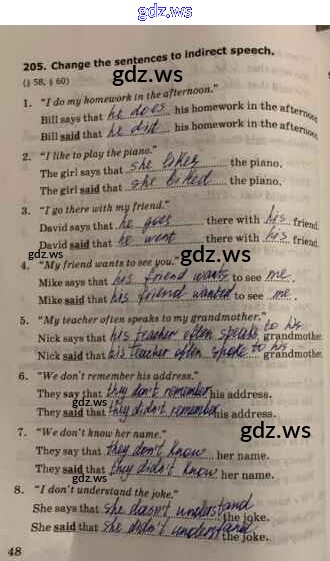 gdz.ws
205. Change the sentences to indirect speech.
(§ 58, § 60)
gdz.ws
1. "I do my homework in the afternoon."
Bill says that he does his homework in the afternoon
Bill said that he did his homework in the afternoon
2. "I like to play the piano."
The girl says that she likes the piano.
The girl said that she liked the piano.
3. "I go there with my friend."
David says that he goes there with his friend
David said that he went there with his friend
gdz.ws
gdz.ws
4. "My friend wants to see you."
Mike says that his friend wants to see me.
Mike said that his friend wanted to see me.
5. "My teacher often speaks to my grandmother."
Nick says that his teacher often speaks to his grandmother
Nick said that his teacher often spoke to his grandmother
6. "We don't remember his address."
They say that they don't remember his address.
They said that they didn't remember his address.
gdz.ws
7. "We don't know her name."
They say that they don't know her name.
They said that they didn't know her name.
gdz.ws
8. "I don't understand the joke."
She says that she doesn't understand the joke.
She said that she didn't understand the joke.
48
gdz.ws